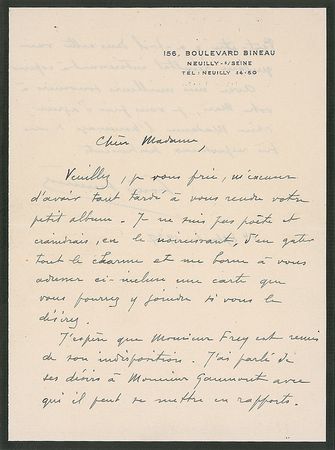 156, BOULEVARD BINEAU
NEUILLY-S/SEINE
TEL: NEUILLY 14-50
Chère Madame,
Veuillez, je vous prie, m'excuser
d'avoir tant tardé à vous rendre votre
petit album. Je ne suis pas poète et
craindrais, en le noircissant, d'en gâter
tout le charme et me borne à vous
adresser ci-incluse une carte que
vous pourrez y joindre si vous le
désirez.
J'espère que Monsieur Frey est remis
de son indisposition. J'ai parlé de
ses désirs à Monsieur avec
qui il peut se mettre en rapports.